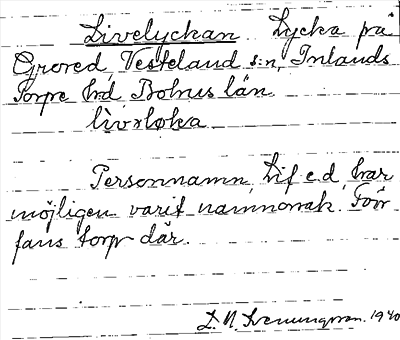 Livelyckan Lycka på
Grored, Vesteland s:n, Inlands
Torpe hd Bohus län.
lìvɤløka
Personnamn, Lif e.d, har
möjligen varit namnorsak. Förr
fans torp där.
1940